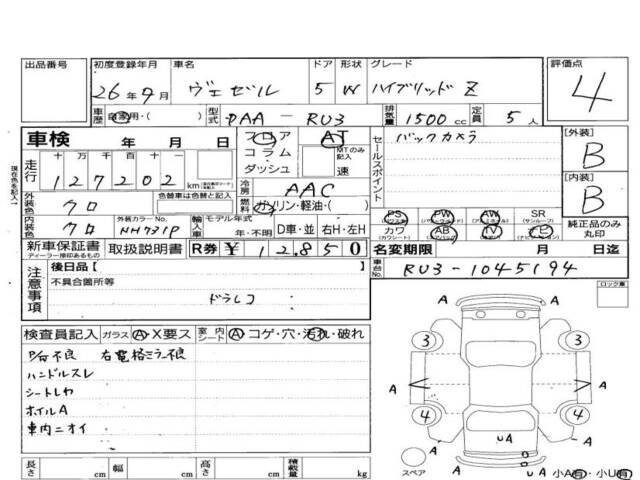 出品番号 初度登録年月 車名 ドア 形状 グレード 評価点
26年9月 ヴェゼル 5 W ハイブリッド Z 4
車歴 自家用・( ) 型式 DAA-RU3 排気量 1500cc 定員 5人
車検 年 月 日 フロア AT セールスポイント バックカメラ [外装]
コラム MTのみ記入 B
ダッシュ 速
現在色を記入
走行 十 万 千 百 十 一
127202 km 冷房 AAC [内装]
外装色 クロ 色替車は色替と記入 燃料 ガソリン・軽油・( ) B
内装色 クロ 外装カラーNo. NH731P 輸入車 モデル年式 年・不明 D車・並 右H・左H
PS PW AW SR
カワ AB TV ナビ 純正品のみ丸印
(カワシート) (エアバッグ)
新車保証書 取扱説明書 R券 ¥12,850 名変期限 月 日迄
ディーラー捺印あるもの
注意事項 後日品[ ] 車台No. RU3-1045194
不具合箇所等 ロック車
ドラレコ
検査員記入 ガラス A・X要ス 室内シート A・コゲ・穴・汚れ・破れ
P/ガ不良 右電格ミラー不良
ハンドルスレ
シートシワ
ホイルA
車内ニオイ
3 3
A A A
4 4
A A
U A
スペア A U 小A有・小U有
長さ cm 幅 cm 高さ cm 積載量 kg